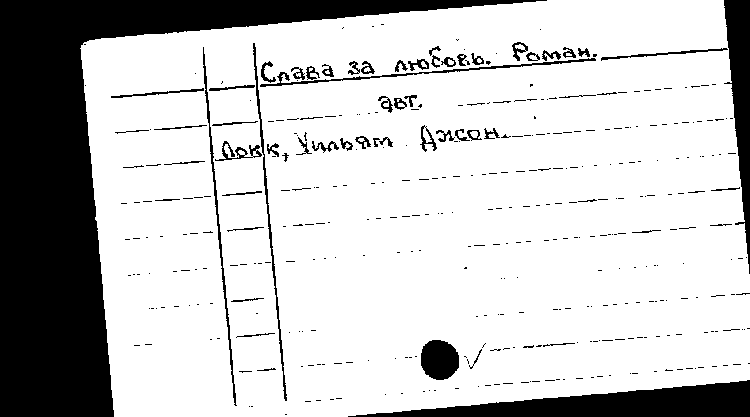 Слава за любовь. Роман.
авт.
Локк, Уильям Джон.